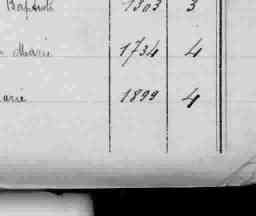 Baptiste 1303 3
Marie 1734 4
arie 1899 4